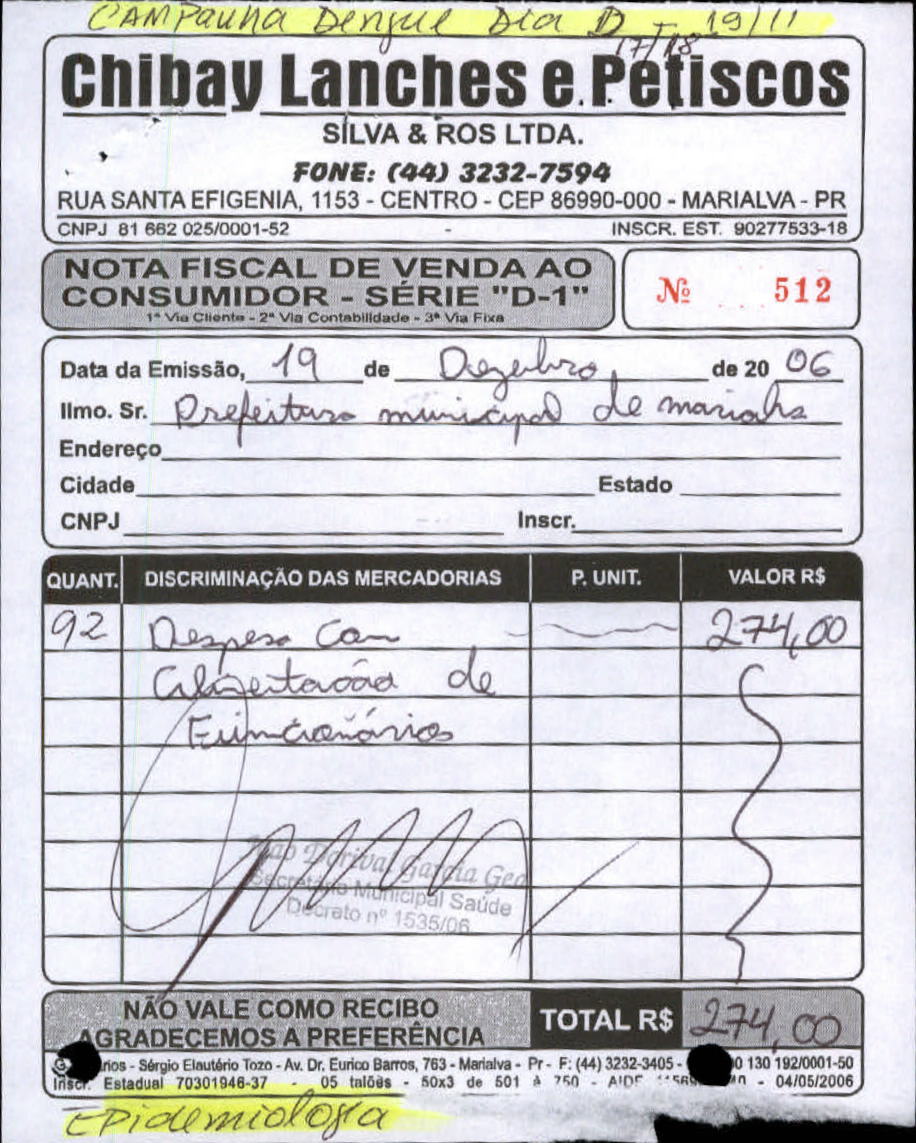 CAMPAUHA Dengue Dia D - 19/11
17/18
Chibay Lanches e Petiscos
SILVA & ROS LTDA.
FONE: (44) 3232-7594
RUA SANTA EFIGENIA, 1153 - CENTRO - CEP 86990-000 - MARIALVA - PR
CNPJ 81 662 025/0001-52 INSCR. EST. 90277533-18
NOTA FISCAL DE VENDA AO
CONSUMIDOR - SÉRIE "D-1"
1ª Via Cliente - 2ª Via Contabilidade - 3ª Via Fixa
Nº 512
Data da Emissão, 19 de Dezembro de 20 06
Ilmo. Sr. Prefeitura municipal de marialva
Endereço
Cidade Estado
CNPJ Inscr.
QUANT. DISCRIMINAÇÃO DAS MERCADORIAS P. UNIT. VALOR R$
92 Despesa Com 274,00
Alimentação de
Funcionários
João Dorival Garcia Gea
Secretário Municipal Saúde
Decreto nº 1535/06
NÃO VALE COMO RECIBO
AGRADECEMOS A PREFERÊNCIA
TOTAL R$ 274,00
- Sérgio Elautério Tozo - Av. Dr. Eurico Barros, 763 - Marialva - Pr - F: (44) 3232-3405 - 130 192/0001-50
Inscr. Estadual 70301946-37 - 05 talões - 50x3 de 501 à 750 - AIDF - 04/05/2006
Epidemiologia